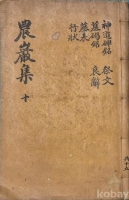 神道碑銘 祭文
墓碣銘 哀辭
墓表
行狀
農巖集 十
KOBAY